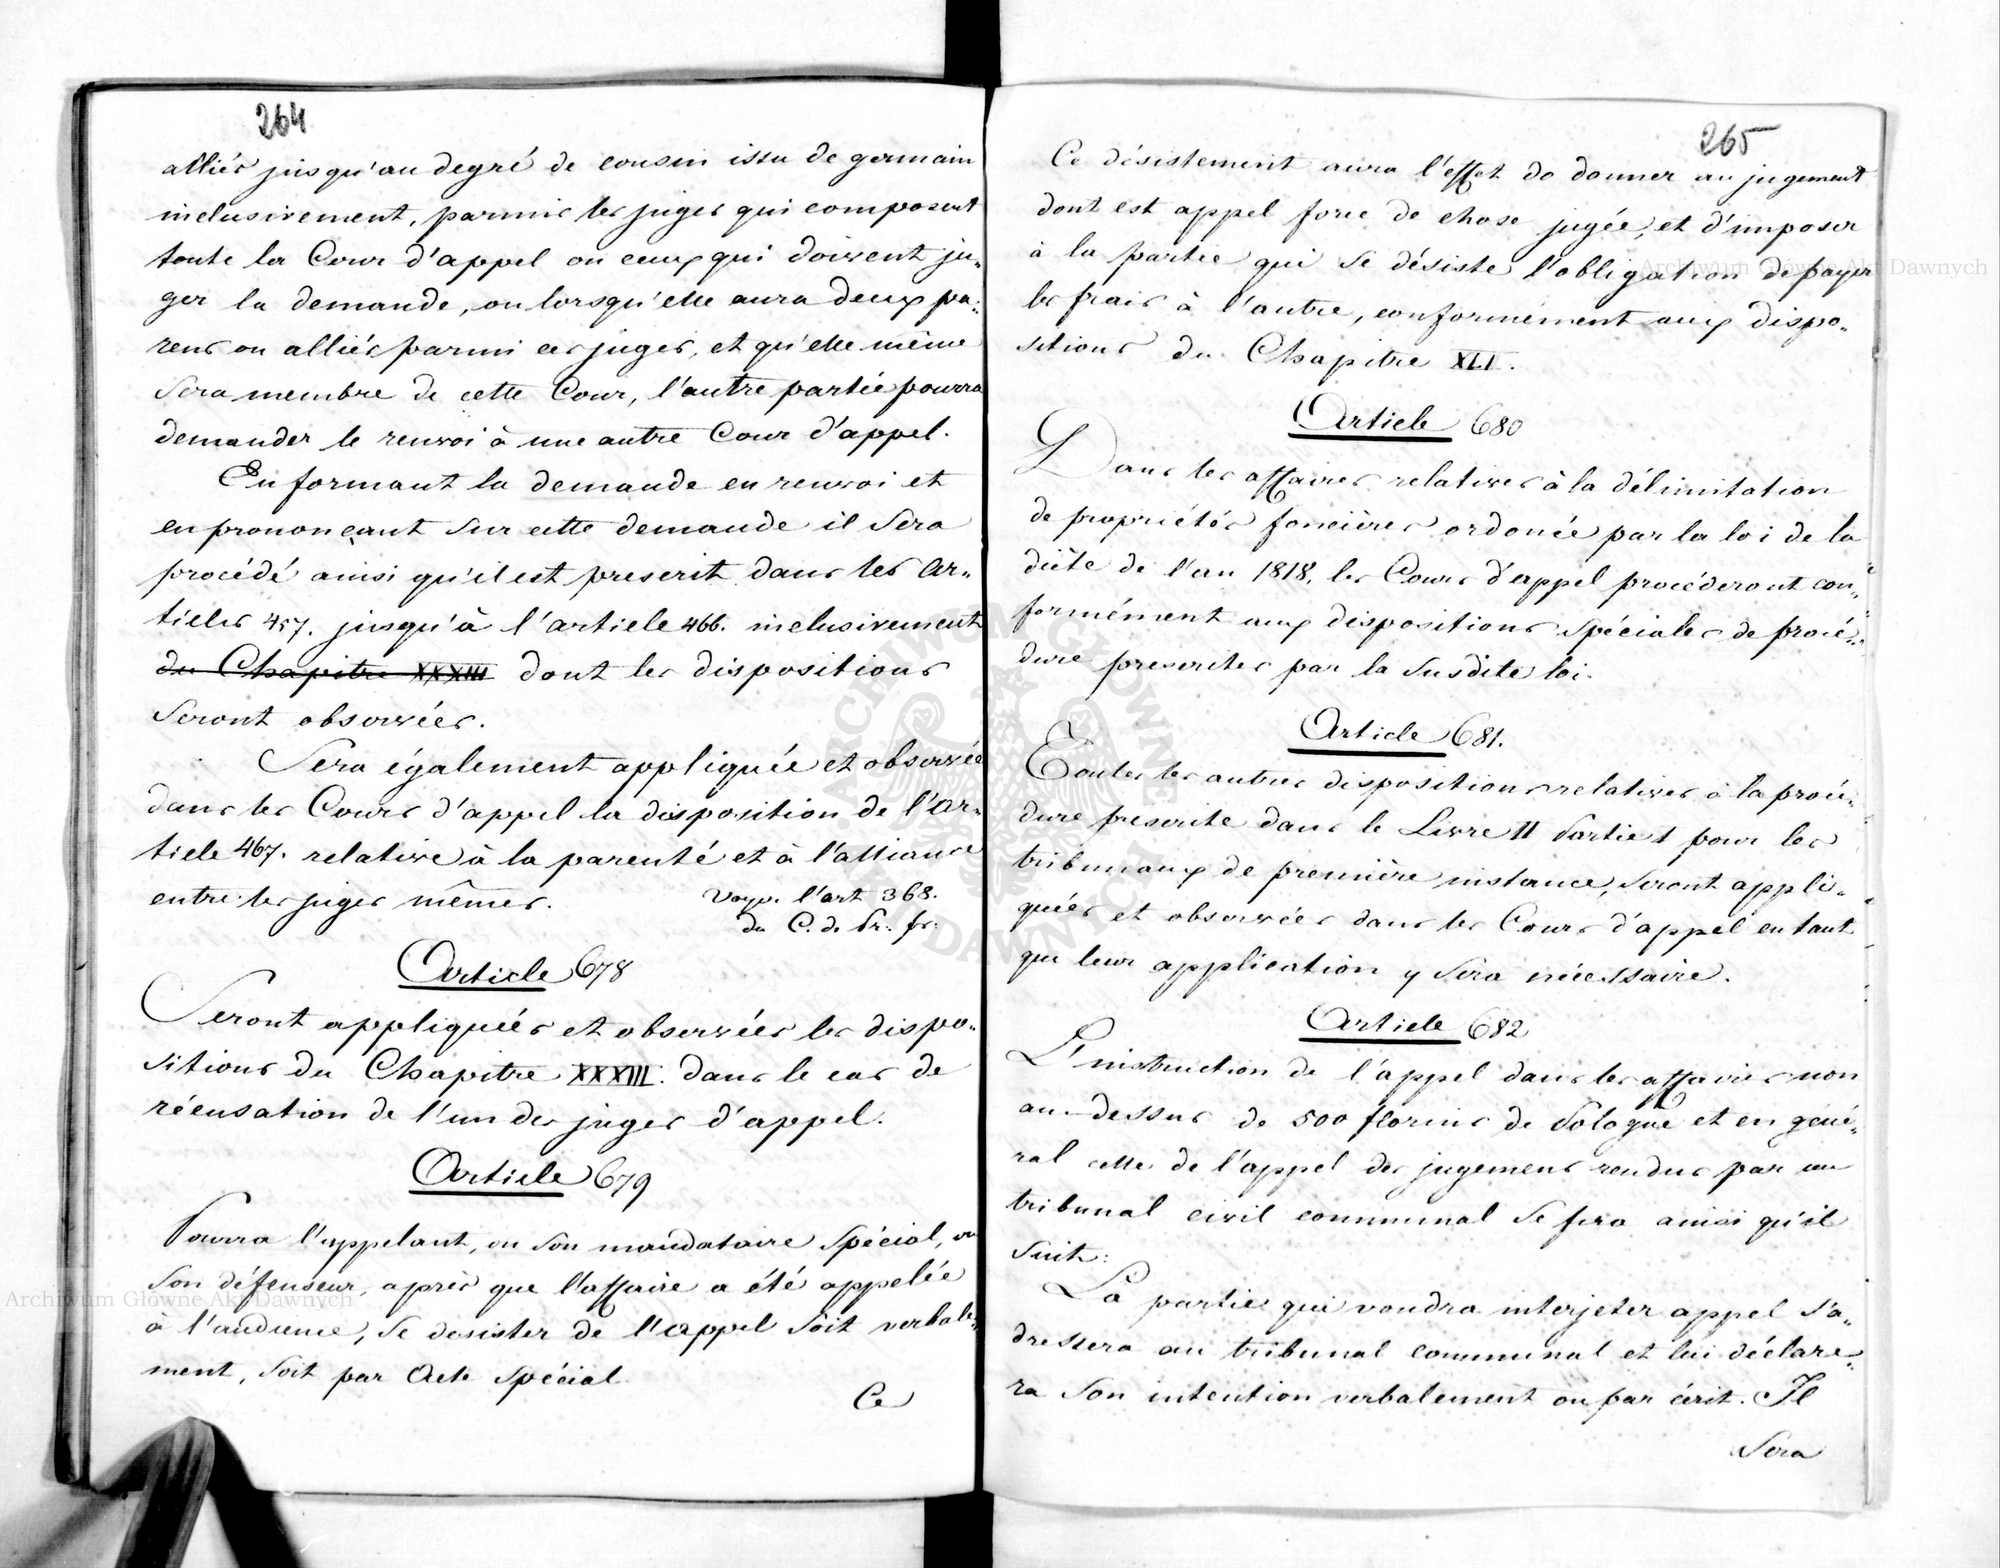 264
alliés jusqu'au degré de cousin issu de germain
inclusivement, parmis les juges qui composent
toute la Cour d'appel ou ceux qui doivent ju-
ger la demande, ou lorsqu'elle aura deux pa-
rens ou alliés parmi ces juges, et qu'elle même
sera membre de cette Cour, l'autre partie pourra
demander le renvoi à une autre Cour d'appel.
En formant la demande en renvoi et
en prononçant sur cette demande il sera
procédé ainsi qu'il est prescrit dans les Ar-
ticles 457. jusqu'à l'article 466. inclusivement
du Chapitre XXXIII dont les dispositions
seront observées.
Sera également appliquée et observée
dans les Cours d'appel la disposition de l'Ar-
ticle 467. relative à la parenté et à l'alliance
entre les juges mêmes.
Voyr. l'art 368.
du C. de Pr. fr.
Article 678
Seront appliquées et observées les dispo-
sitions du Chapitre XXXIII. dans le cas de
récusation de l'un des juges d'appel.
Article 679
Pourra l'appelant, ou son mandataire spécial, ou
son défenseur, après que l'affaire a été appelée
à l'audience, se desister de l'appel soit verbale-
ment, soit par Acte spécial
Ce
265
Ce désistement aura l'effet de donner au jugement
dont est appel force de chose jugée, et d'imposer
à la partie qui se désiste l'obligation de payer
les frais à l'autre, conformément aux dispo-
sitions du Chapitre XLI.
Article 680
Dans les affaires relatives à la délimitation
de propriétés foncières ordonée par la loi de la
diète de l'an 1818, les Cours d'appel procéderont con-
formément aux dispositions spéciales de procé-
dure prescrites par la susdite loi.
Article 681.
Toutes les autres dispositions relatives à la procé-
dure prescrite dans le Livre II Partie I pour les
tribunaux de première instance, seront appli-
quées et observées dans les Cours d'appel en tant
que leur application y sera nécessaire.
Article 682
L'instruction de l'appel dans les affaires non
au-dessus de 500 florins de Pologne et en géné-
ral celle de l'appel des jugemens rendus par un
tribunal civil communal se fera ainsi qu'il
suit:
La partie qui voudra interjeter appel s'a-
dressera au tribunal communal et lui déclare-
ra son intention verbalement ou par écrit. Il
sera
Archiwum Główne Akt Dawnych
Archiwum Główne Akt Dawnych
ARCHIWUM GŁÓWNE AKT DAWNYCH